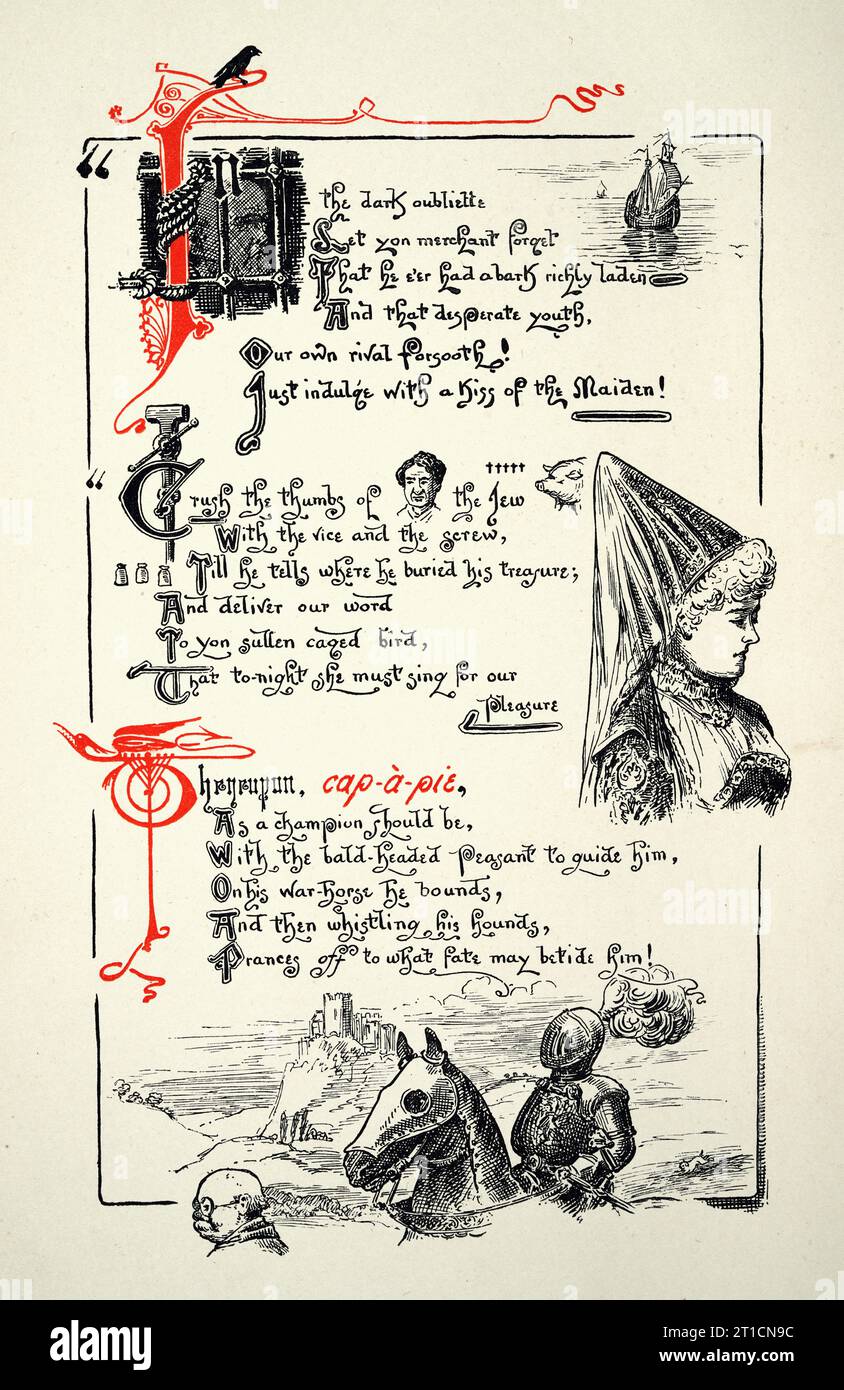 “In
the dark oubliette
Let yon merchant forget
That he e'er had a bark richly laden
And that desperate youth,
Our own rival forsooth!
Just indulge with a kiss of the Maiden!
“Crush the thumbs of the Jew
With the vice and the screw,
Till he tells where he buried his treasure;
And deliver our word
To yon sullen caged bird,
That to-night she must sing for our
Pleasure
Thereupon, cap-à-pie,
As a champion should be,
With the bald-headed peasant to guide him,
On his war-horse he bounds,
And then whistling his hounds,
Prances off to what fate may betide him!
alamy
alamy
alamy
alamy
Image ID: 2T1CN9C
www.alamy.com